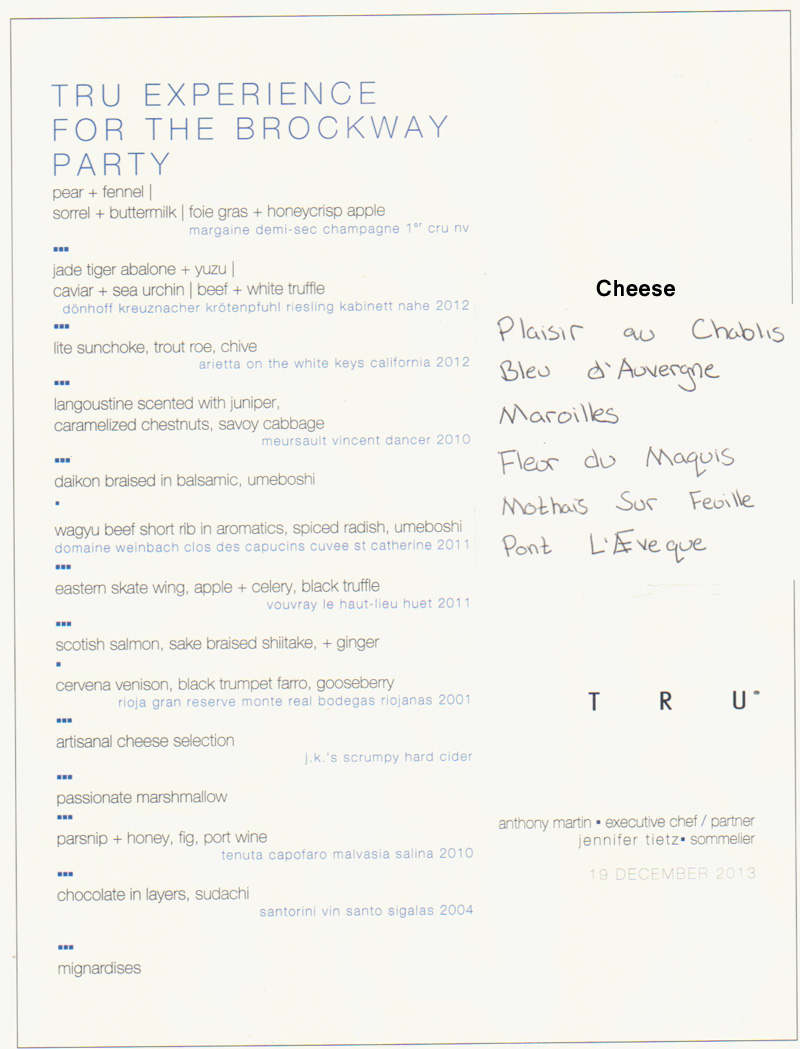 TRU EXPERIENCE
FOR THE BROCKWAY
PARTY
pear + fennel |
sorrel + buttermilk | foie gras + honeycrisp apple
margaine demi-sec champagne 1er cru nv
jade tiger abalone + yuzu |
caviar + sea urchin | beef + white truffle
dönhoff kreuznacher krötenpfuhl riesling kabinett nahe 2012
lite sunchoke, trout roe, chive
arietta on the white keys california 2012
langoustine scented with juniper,
caramelized chestnuts, savoy cabbage
meursault vincent dancer 2010
daikon braised in balsamic, umeboshi
wagyu beef short rib in aromatics, spiced radish, umeboshi
domaine weinbach clos des capucins cuvee st catherine 2011
eastern skate wing, apple + celery, black truffle
vouvray le haut-lieu huet 2011
scotish salmon, sake braised shiitake, + ginger
cervena venison, black trumpet farro, gooseberry
rioja gran reserve monte real bodegas riojanas 2001
artisanal cheese selection
j.k.'s scrumpy hard cider
passionate marshmallow
parsnip + honey, fig, port wine
tenuta capofaro malvasia salina 2010
chocolate in layers, sudachi
santorini vin santo sigalas 2004
mignardises
Cheese
Plaisir au Chablis
Bleu d'Auvergne
Maroilles
Fleur du Maquis
Mothais Sur Feuille
Pont L'Æveque
TRU®
anthony martin ▪ executive chef / partner
jennifer tietz▪ sommelier
19 DECEMBER 2013